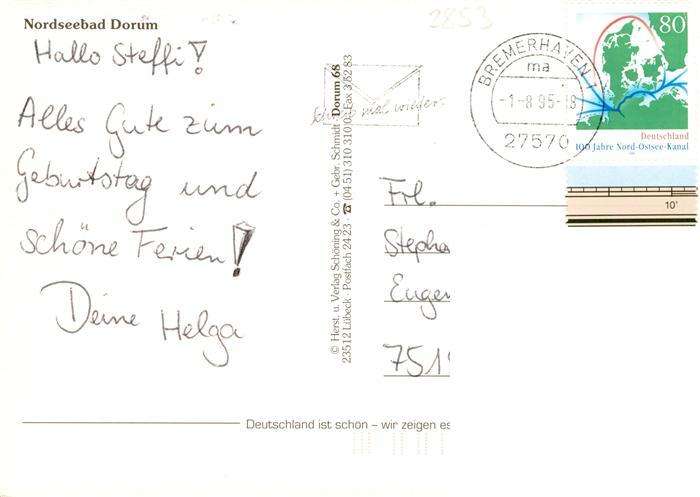 Nordseebad Dorum
Hallo Steffi!
Alles Gute zum
Geburtstag und
schöne Ferien!
Deine Helga
© Herst. u. Verlag Schöning & Co. + Gebr. Schmidt · Dorum 68
23512 Lübeck · Postfach 24 23 · ☎ (04 51) 310 310
2853
mal wieder
BREMERHAVEN
ma
-1-8 95-18
27570
80
Deutschland
100 Jahre Nord-Ostsee-Kanal
10'
Frl.
Stepha
Eugen
751
Deutschland ist schön – wir zeigen es